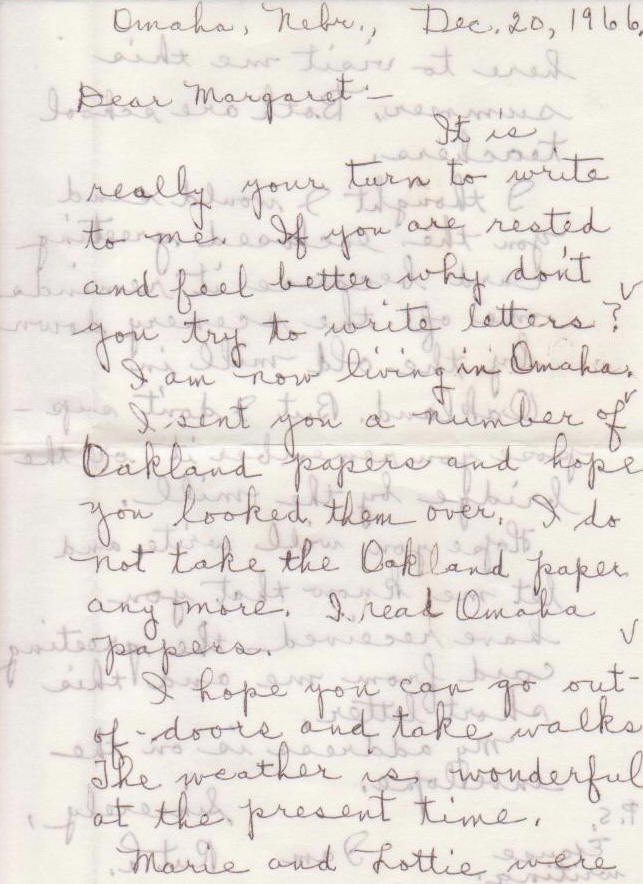 Omaha, Nebr., Dec. 20, 1966.
Dear Margaret:—
It is
really your turn to write
to me. If you are rested
and feel better why don't
you try to write letters?
I am now living in Omaha.
I sent you a number of
Oakland papers and hope
you looked them over. I do
not take the Oakland paper
any more. I read Omaha
papers.
I hope you can go out-
of-doors and take walks
The weather is wonderful
at the present time.
Marie and Lottie were